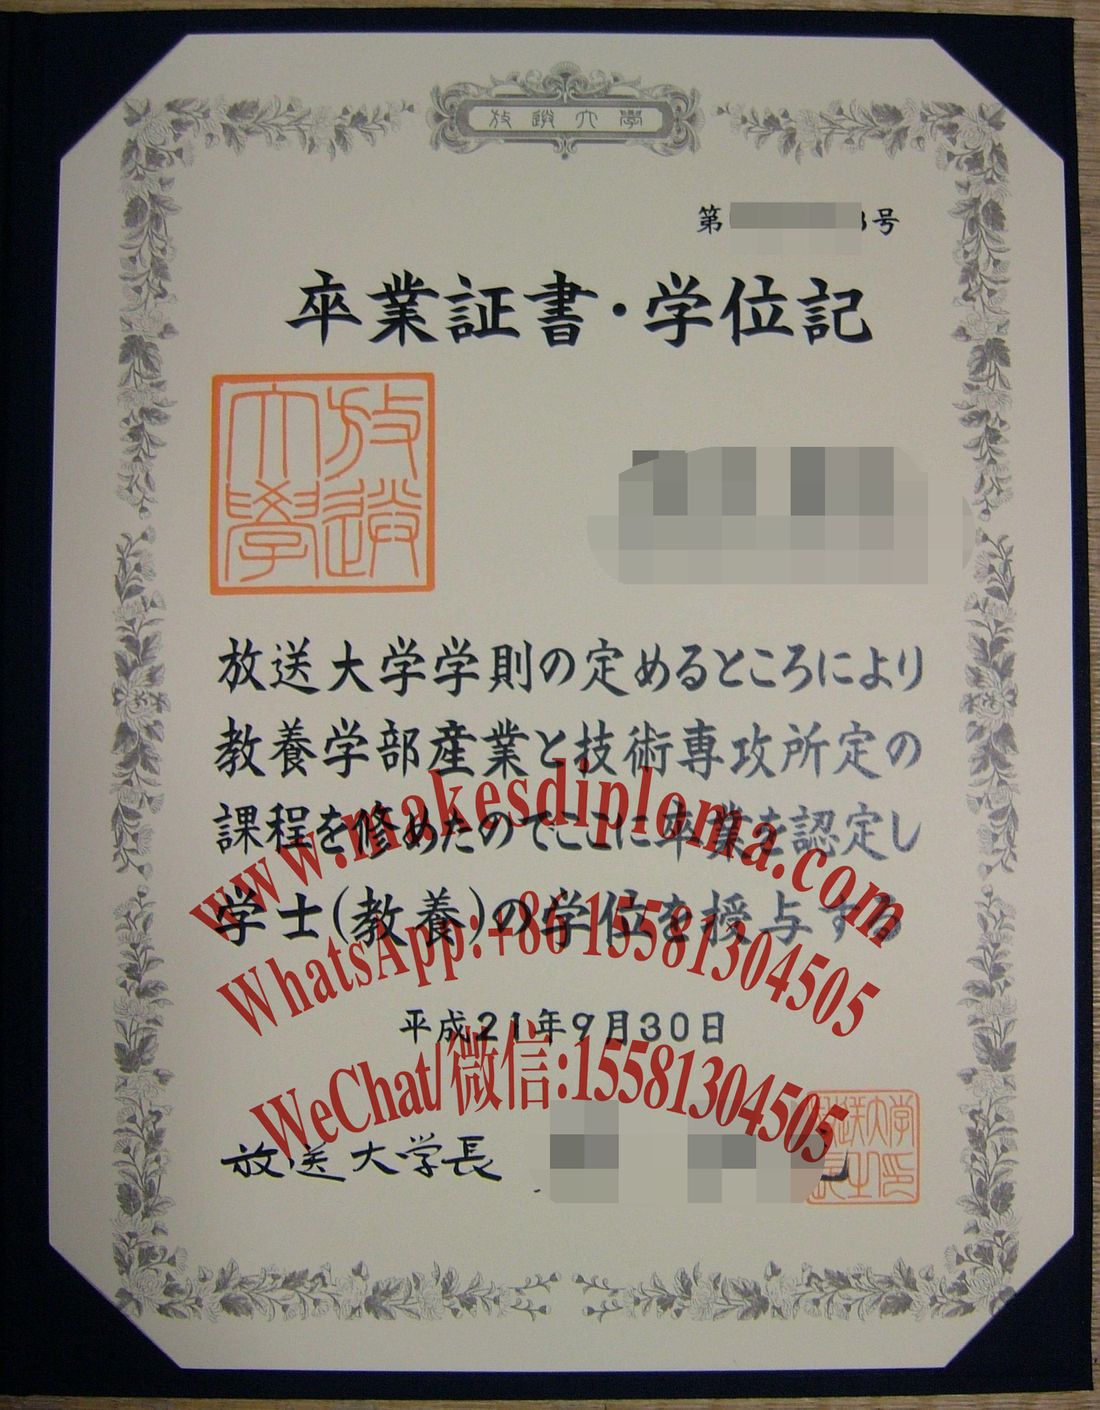 放送大學
第 3号
卒業証書・学位記
放送大學
放送大学学則の定めるところにより
教養学部産業と技術専攻所定の
課程を修めたのでここに卒業を認定し
学士(教養)の学位を授与する
www.makesdiploma.com
WhatsApp:+86 15581304505
平成21年9月30日
WeChat/微信:15581304505
放送大学長